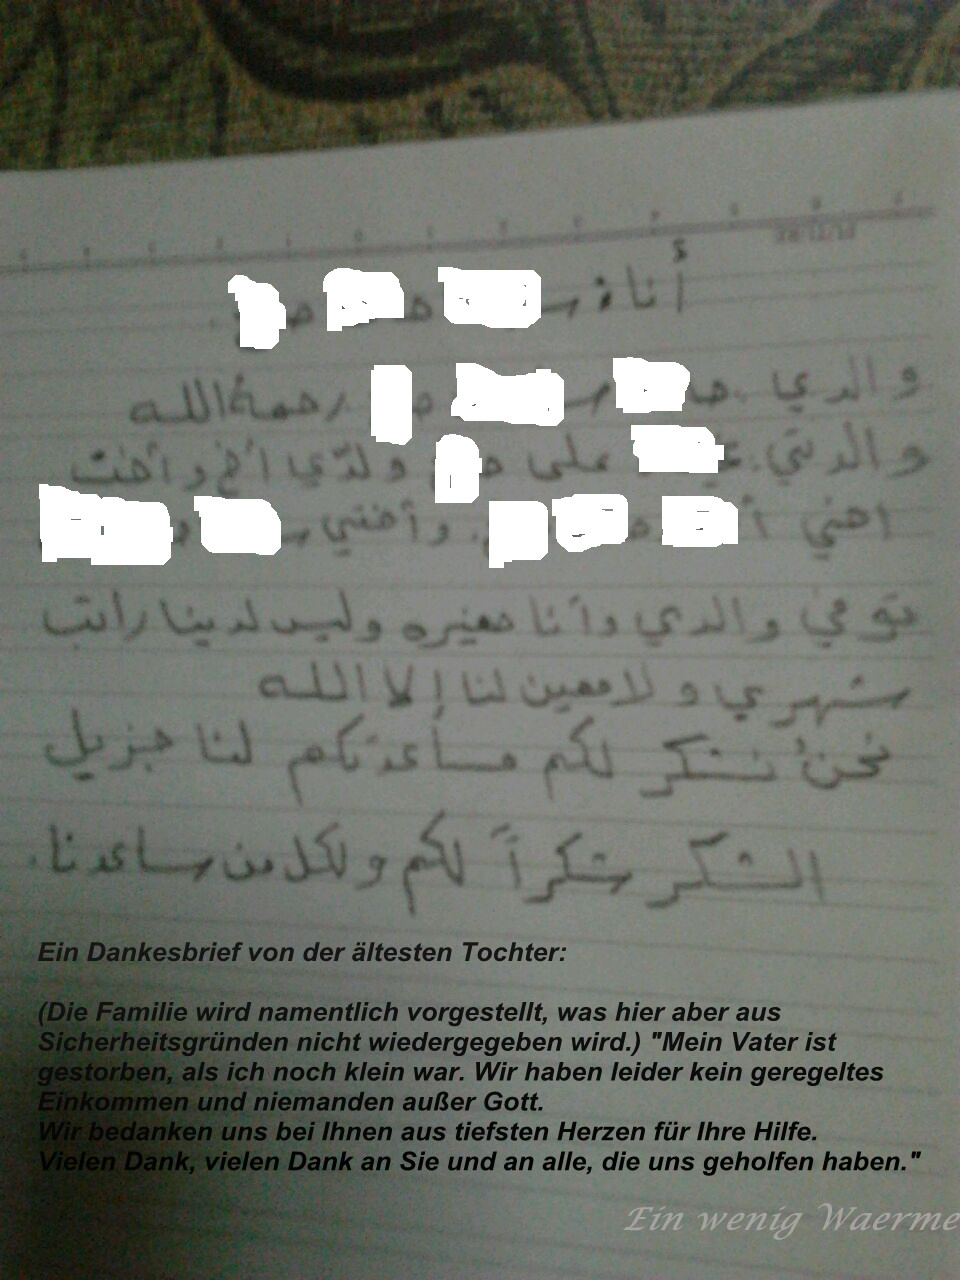 أنا
والدي رحمة الله
والدتي علي ولدي أخ و أخت
اخي وأختي
توفي والدي وأنا صغيره وليس لدينا راتب
شهري و لا معين لنا إلا الله
نحن نشكر لكم مساعدتكم لنا جزيل
الشكر شكراً لكم و لكل من ساعدنا.
Ein Dankesbrief von der ältesten Tochter:
(Die Familie wird namentlich vorgestellt, was hier aber aus
Sicherheitsgründen nicht wiedergegeben wird.) "Mein Vater ist
gestorben, als ich noch klein war. Wir haben leider kein geregeltes
Einkommen und niemanden außer Gott.
Wir bedanken uns bei Ihnen aus tiefsten Herzen für Ihre Hilfe.
Vielen Dank, vielen Dank an Sie und an alle, die uns geholfen haben."
Ein wenig Waerme